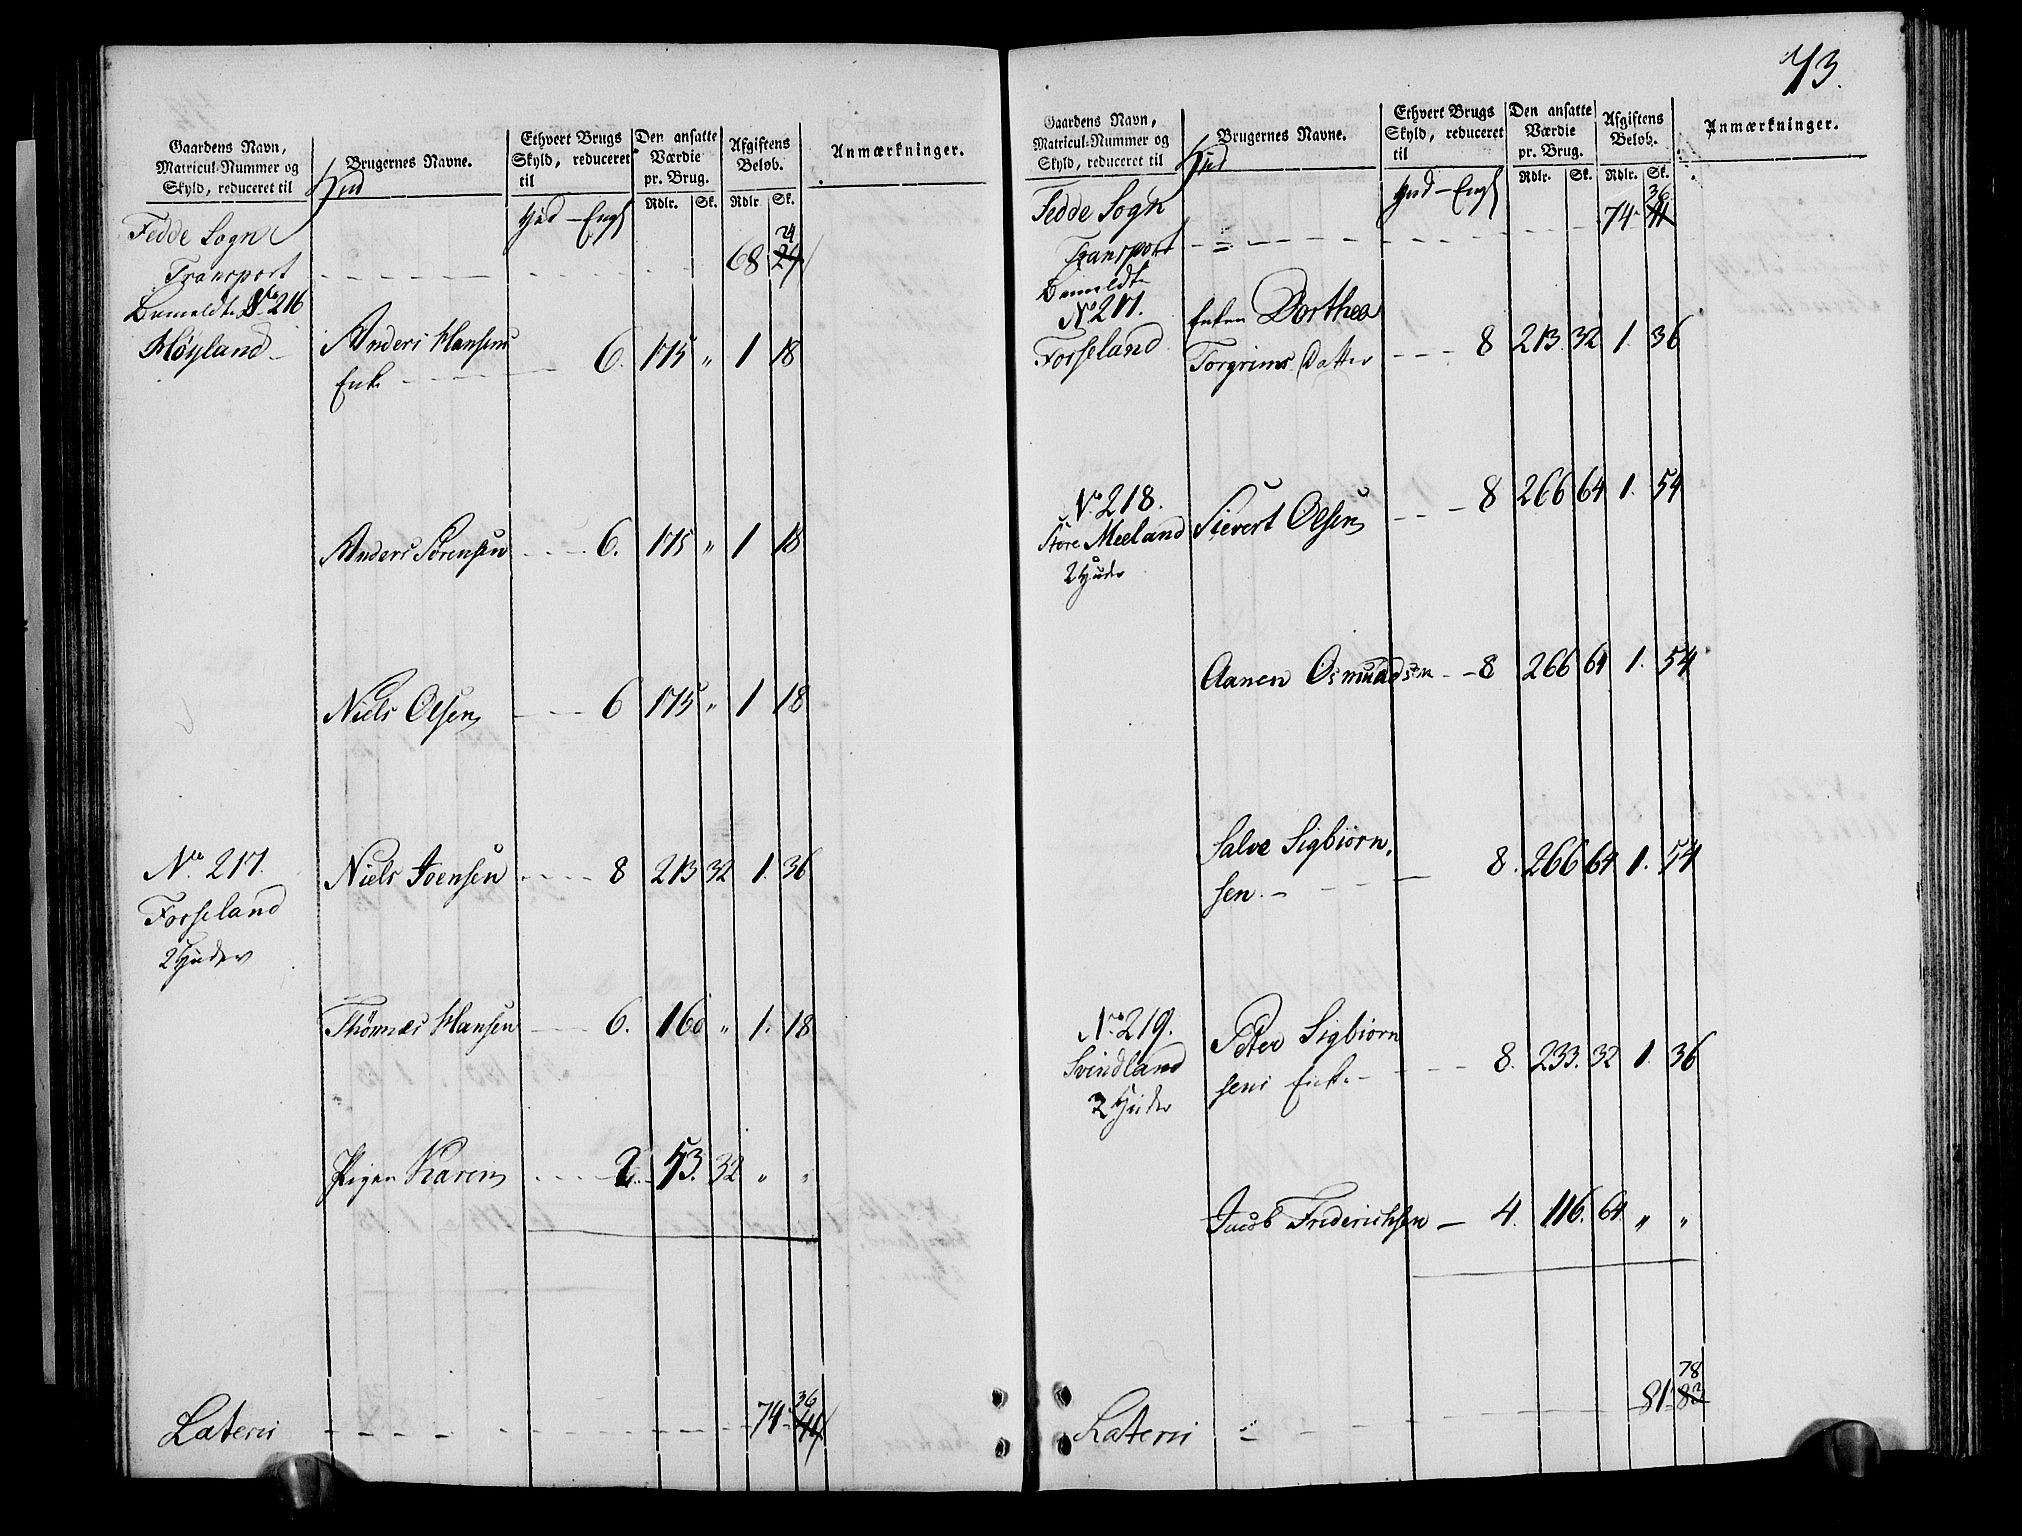 Gaardens Navn,
Matricul-Nummer og
Skyld, reduceret til
Hud
Brugernes Navne.
Ethvert Brugs
Skyld, reduceret
til
Hud — Eng
Den ansatte
Værdie
pr. Brug.
Rdlr. Sk.
Afgiftens
Beløb.
Rdlr Sk.
Anmærkninger.
Fedde Sogn
Transport 68 24
Bemeldte No 216
Høyland Anders Hansens
Enke 6. 175 " 1 18
Anders Sørensen 6. 175 " 1 18
Niels Olsen 6 175 " 1 18
No 217. Niels Joensen 8 213 32 1. 36
Forseland
2 Huder
Thømæs Hansen 6. 160 " 1. 18
Pigen Karen 2. 53. 32 " "
Lateris 74 36
73.
Gaardens Navn,
Matricul-Nummer og
Skyld, reduceret til
Hud
Brugernes Navne.
Ethvert Brugs
Skyld, reduceret
til
Hud — Eng
Den ansatte
Værdie
pr. Brug.
Rdlr. Sk.
Afgiftens
Beløb.
Rdlr. Sk.
Anmærkninger.
Fedde Sogn 74 36
Transport
Bemeldte
No 217. Enken Dorthea
Forseland Torgrims Datter 8 213 32 1. 36
No 218. Sievert Olsen 8 266 64 1. 54
Store Meeland
2 Huder
Aanen Osmundsen 8 266 64 1. 54
Salve Sigbiørn-
sen 8. 266 64 1. 54
No 219. Peter Sigbiørn
Svindland sens Enke 8. 233. 32 1. 36
2 Huder
Jacob Friderichsen 4. 116. 64 " "
Lateris 81 78